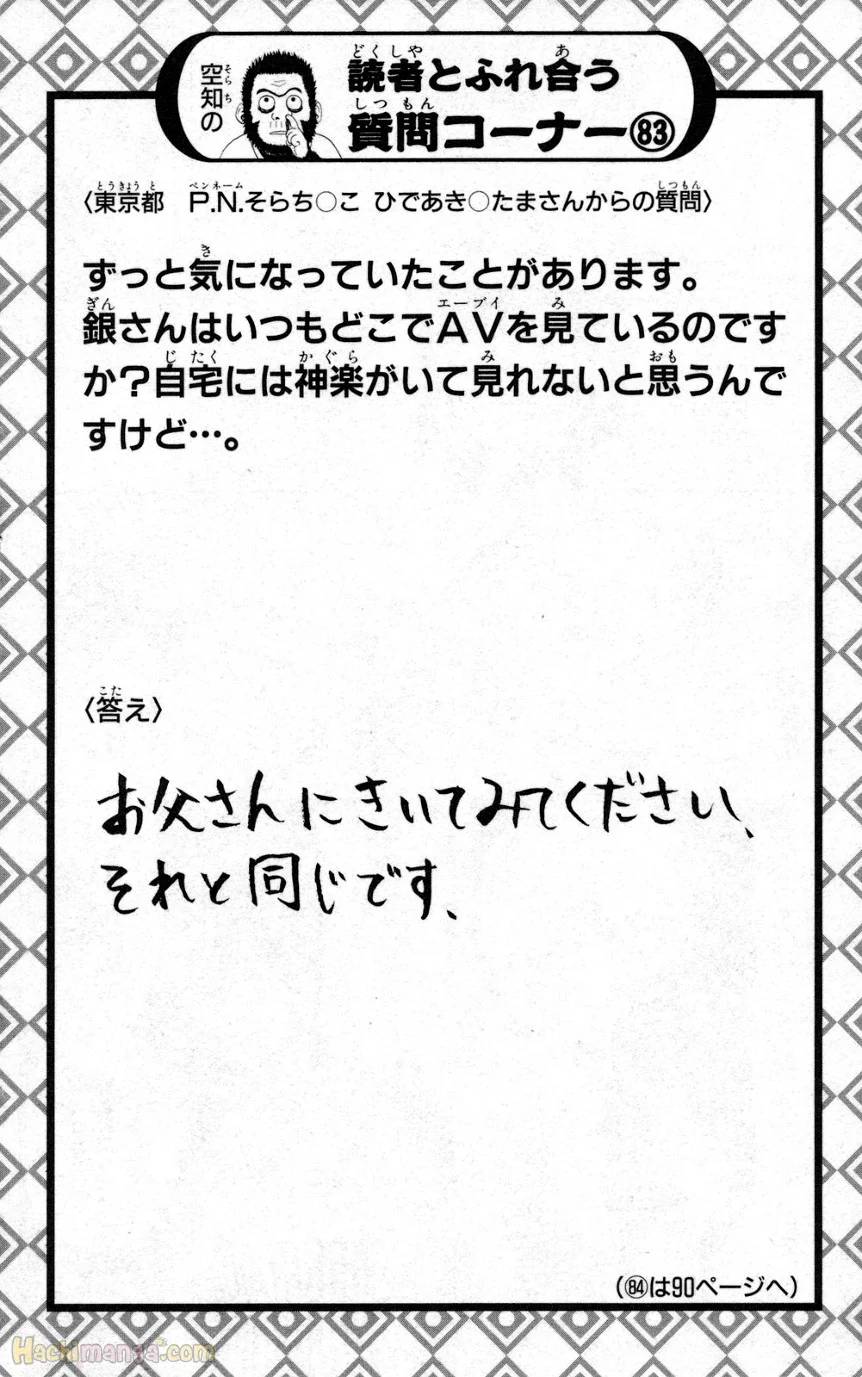 空知の
読者とふれ合う
質問コーナー㊃
〈東京都　P.N.そらち○こ ひであき○たまさんからの質問〉
ずっと気になっていたことがあります。
銀さんはいつもどこでＡＶを見ているのです
か？自宅には神楽がいて見れないと思うんで
すけど…。
〈答え〉
お父さんにきいてみてください、
それと同じです、
（84は90ページへ）
Hachimanga.com